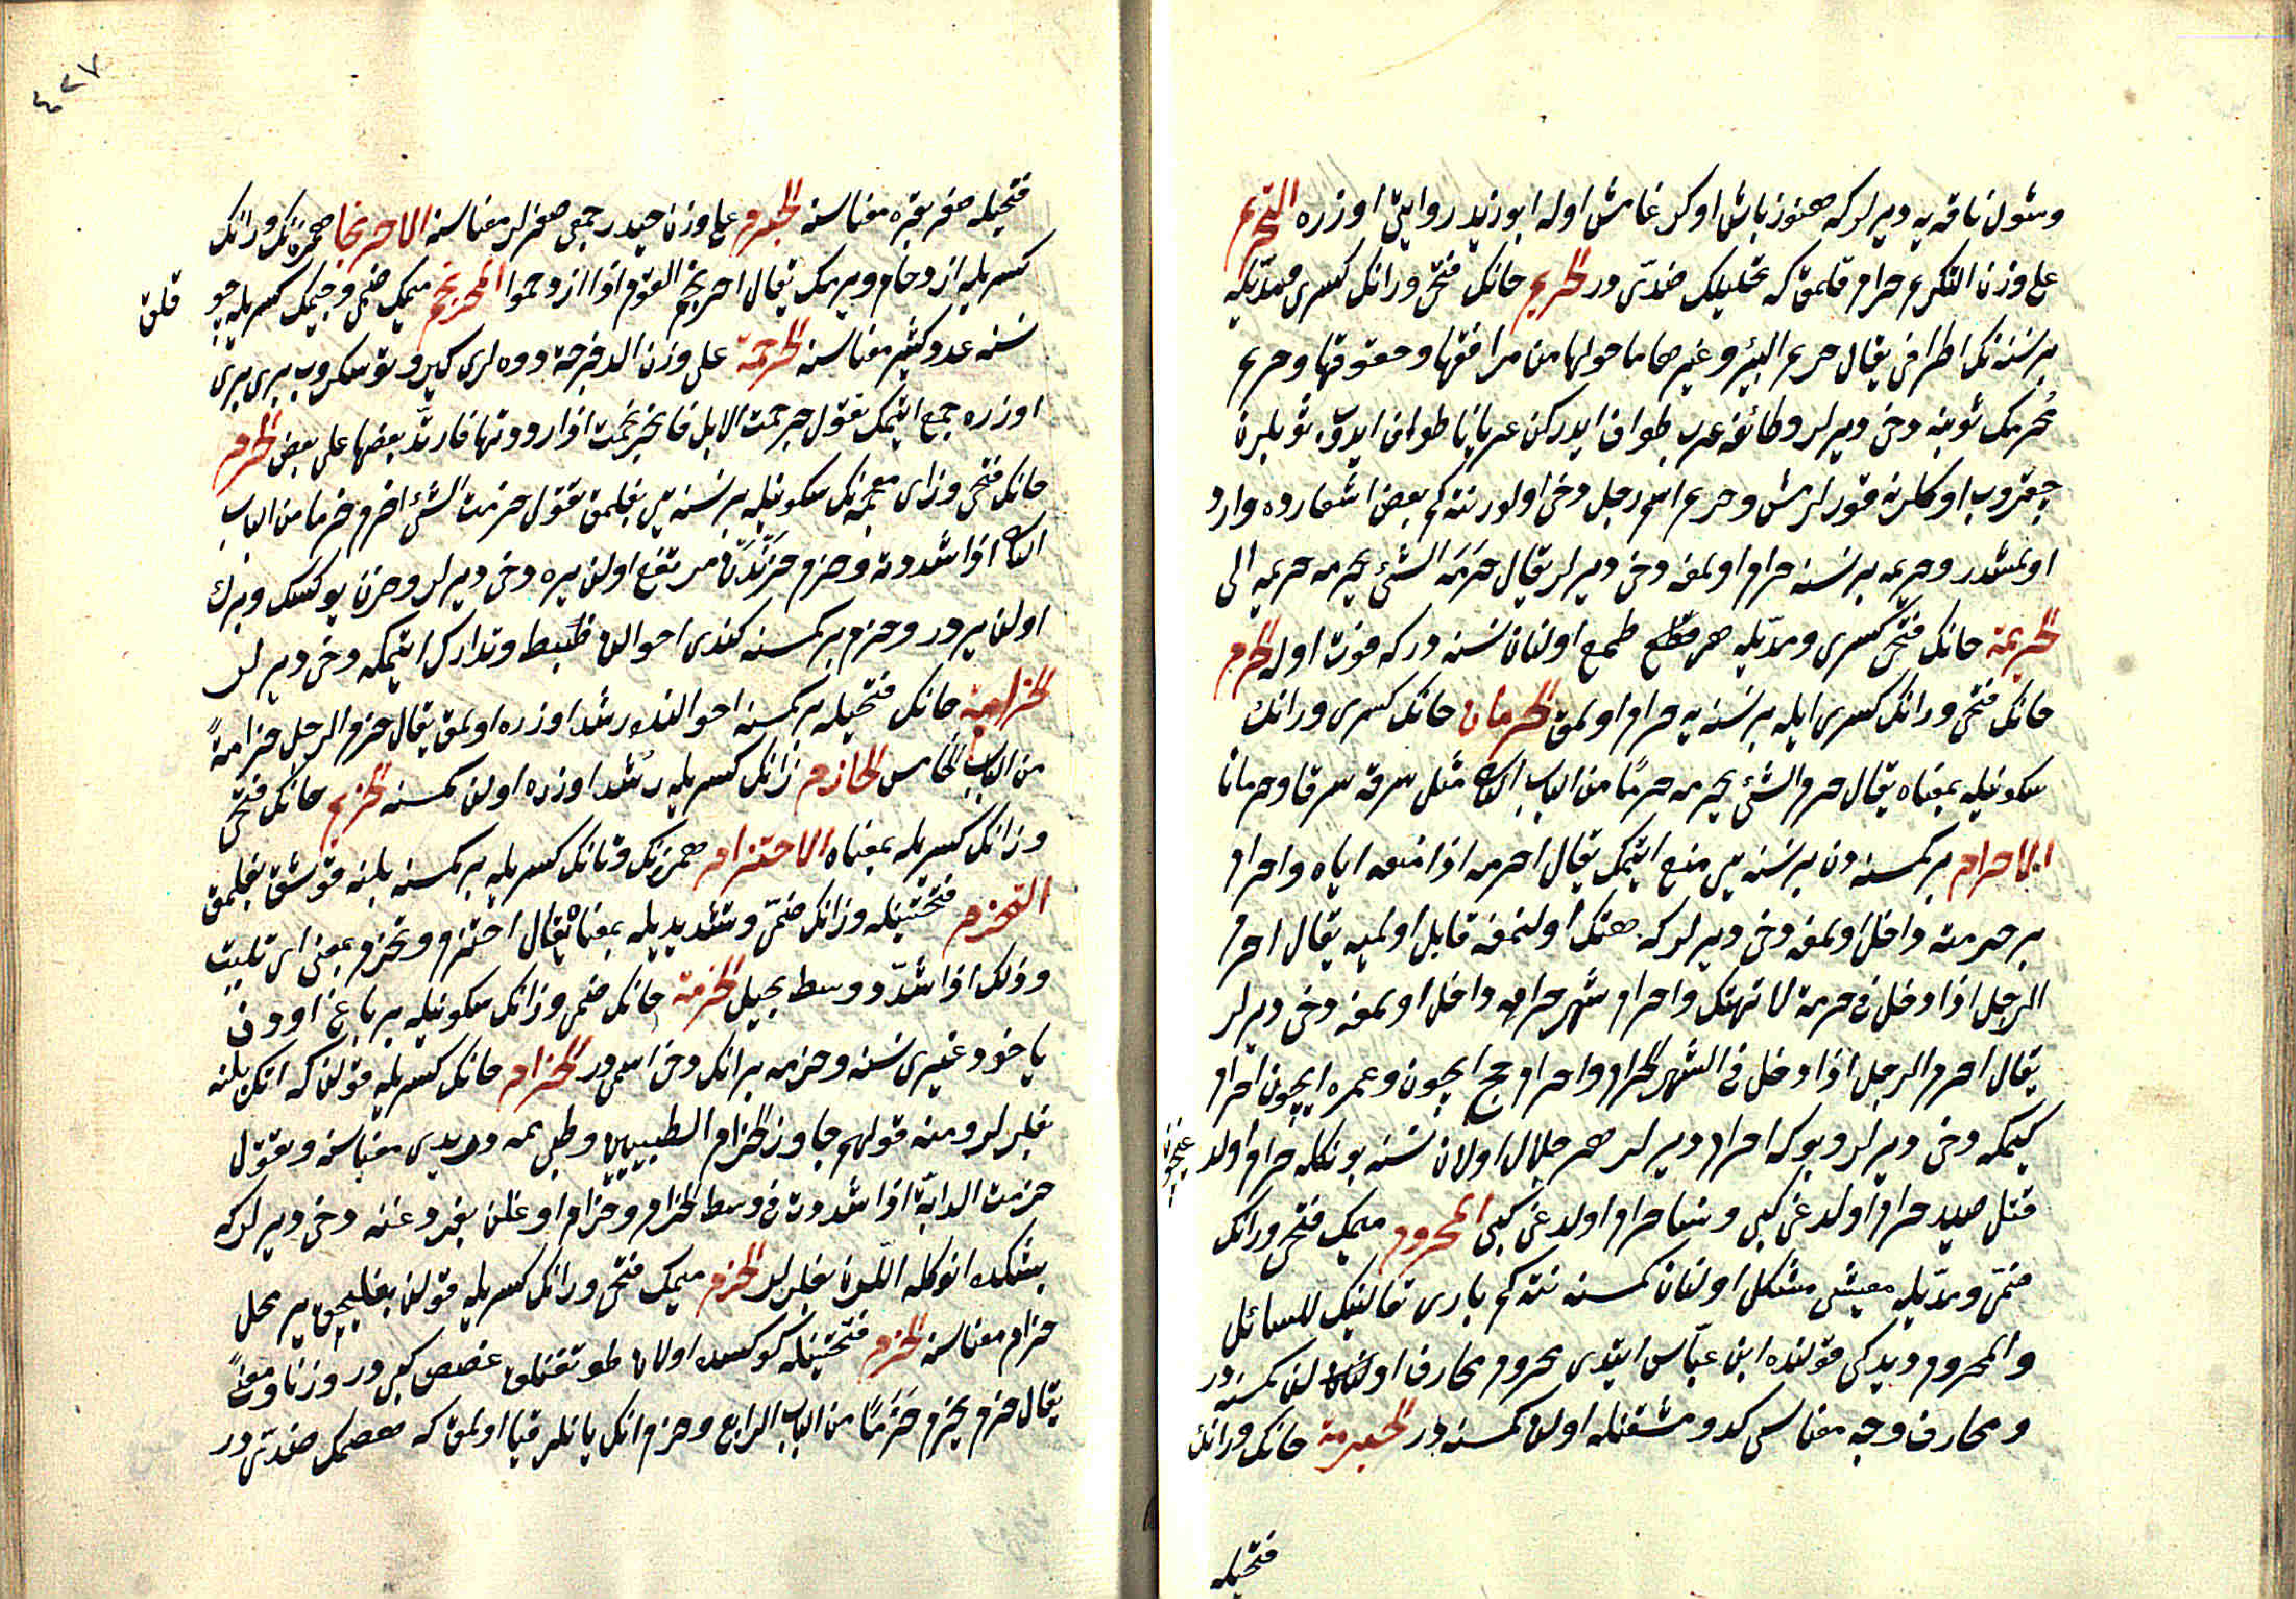 وشول ناقه يه ديرلر كه هنوز باش اوكرغامش اوله ابو زيد روايتى اوزره التحريم
على وزن التكريم حرام قلمق كه تحليلك ضدّى در الحريم حانك فتحى ورانك كسرى ومدّيله
برنسنه نك اطرافى يقال حريم البئر وغيرها ما حولها من مرافقها وحقوقها وحريم
محرمك ثوبنه دخى ديرلر وطائفۀ عرب طواف ايدركن عريانا طواف ايدوب ثوبلرن
چقروب اوكلرنه قورلرمش وحريم اسم رجل دخى اولور نته كم بعض اشعارده وارد
اولمشدر وحريمه برنسنه حرام اولمغه دخى ديرلر يقال حَرَمَه الشئ يحرمه حريمه الى
الحريمة حانك فتحى كسرى ومدّيله هر طمع اولنان نسنه در كه فوت اوله الحرم
حانك فتحى ورانك كسرى ايله برنسنه يه حرام اولمق الحرمان حانك كسرى ورانك
سكونيله بمعناه يقال حرم الشئ يحرمه حرمًا من الباب الثانى مثل سرقه سرقا وحرمانا
الاحرام بركمسنه دن برنسنه يى منع ايتمك يقال احرمه اذا منعه اياه واحرام
بر حرمته داخل اولمغه دخى ديرلر كه هتك اولنمغه قابل اولميه يقال احرم
الرجل اذا دخل فى حرمة لا تهتك واحرام شهر حرامه داخل اولمغه دخى ديرلر
يقال احرم الرجل اذا دخل فى الشهر الحرام واحرام حج ايچون وعمره ايچون احرام
كيمكه دخى ديرلر وبوكه احرام ديرلر هر حلال اولان نسنه بونكله حرام اولدوغيچون
قتل صيد حرام اولدغى كبى ونسا حرام اولدغى كبى المحروم ميمك فتحى ورانك
ضمّى ومدّيله معيشتى مشكل اولنان كمسنه نته كم بارى تعالينك للسائل
والمحروم ديدكى قولنده ابن عبّاس ايتدى محروم محارف اولان كمسنه در
ومحارف وجه معاسى كد ومشقتله اولان كمسنه در الحيرمة حانك ورانك
فتحيله
٤٢٧
فتحيله صغر بقره معناسنه الحيرم على وزن حيدر جمعى صغرلر معناسنه الاحرنجام همزه نك ورانك
كسريله ازدحام ويرمك يقال احرنجم القوم اذا ازدحموا المحرنجم ميمك ضمى وجيمك كسريله چوقلق
نسنه عدد كثير معناسنه الحرجمة على وزن الدحرجة دوه لرى كيرو دوندروب برى برى
اوزره جمع ايتمك تقول حرجمت الابل فاحرنجمت اذا رددتها فارتدّ بعضها على بعض الحزم
حانك فتحى وزاى معجمه نك سكونيله برنسنه يى بغلمق تقول حزمت الشئ احزمه حزما من الباب
الثانى اذا شددته وحزم حَزْنْدَن مرتفع اولان يره دخى ديرلر وحزن يوكسك وبرك
اولان يردر وحزم بركمسنه كندى احوالن ضبط وتدارك ايتمكه دخى ديرلر
الحزامة حانك فتحيله بركمسنه احوالنده رشد اوزره اولمق يقال حزم الرجل حزامةً
من الباب الخامس الحازم زانك كسريله رشد اوزره اولان كمسنه الحزيم حانك فتحى
وزانك كسريله بمعناه الاحتزام همزه نك وتانك كسريله بركمسنه بلنه قوشق بغلمق
التحزم فتحتينله وزانك ضمّى وتشديديله بمعناه يقال احتزم وتحزم بمعنى اى تلبب
وذلك اذا شدّ وسط بحبل الحزمة حانك ضمى وزانك سكونيله بر باغ اودن
ياخود غيرى نسنه وحزمه برانك دخى اسمى در الحزام حانك كسريله قولان كه انك بلنه
بغلرلر ومنه قولهم جاوز الحزام الطبيين وطبى مه ديدى معناسنه وتقول
حزمت الدابّة اذا شددت فى وسط الحزام وحزام اوغلان بغردغنه دخى ديرلر كه
بشكده انوكله اللّرن بغلرلر المحزم ميمك فتحى ورانك كسريله قولان بغليجق ير محل
حزام معناسنه الحزم فتحتينله كوكسده اولان طوتقنلق غصص كبى در وزنا ومعنًى
يقال حزم يحزم حَزَمًا من الباب الرابع وحزم انك يانلر قبا اولمق كه هضمك ضدّى در